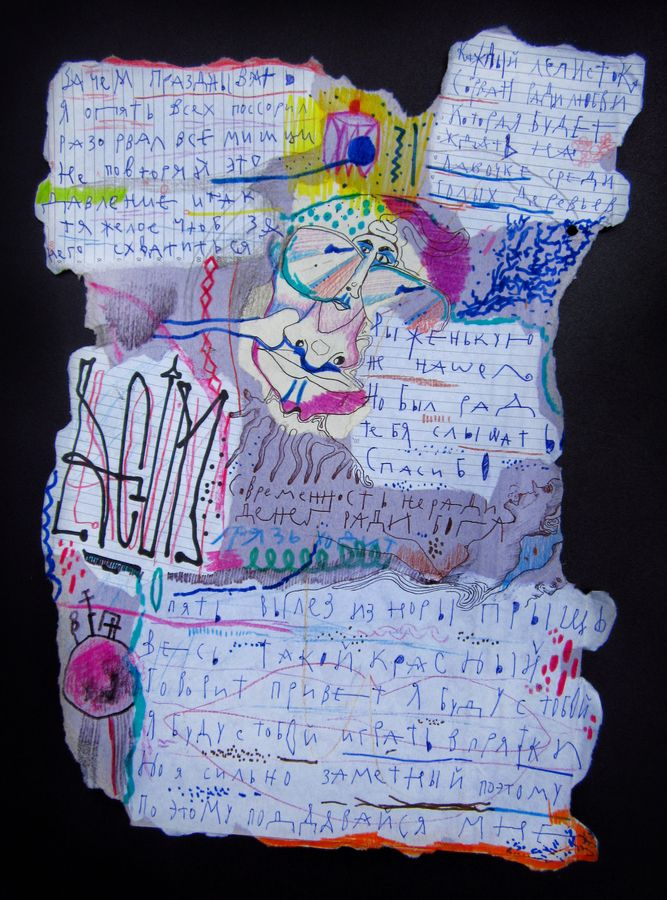 ЗАЧЕМ ПРАЗДНЫВАТЬ
Я ОПЯТЬ ВСЕХ ПОССОРИЛ
РАЗОРВАЛ ВСЕ МИШЦИ
НЕ ПОВТОРЯЯ ЭТО
ДАВЛЕНИЕ И ТАК
ТЯЖЕЛОЕ ЧТОБ ЗА
НЕГО СХВАТИТЬСЯ
КАЖДЫЙ ЛЕПИСТОК
СОРВАН РАДИ ЛЮБВИ
КОТОРАЯ БУДЕТ
ЖДАТЬ НА
ЛАВОЧКЕ СРЕДИ
ГОЛЫХ ДЕРЕВЬЕВ
РЫЖЕНЬКУГО
НЕ НАШЕЛ
НО БЫЛ РАД
ТЕБЯ СЛЫШАТЬ
СПАСИБО
СОВРЕМЕННОСТЬ НЕ РАДИ
ДЕНЕГ РАДИ БОГА
ОПЯТЬ ВЫЛЕЗ ИЗ НОРЫ ПРЫЩЬ
ВЕСЬ ТАКОЙ КРАСНЫЙ
ГОВОРИТ ПРИВЕТ Я БУДУ С ТОБОЙ
Я БУДУ С ТОБОЙ ИГРАТЬ В ПРЯТКИ
НО Я СИЛЬНО ЗАМЕТНЫЙ ПОЭТОМУ
ПОЭТОМУ ПОДДАВАЙСЯ МНЕ